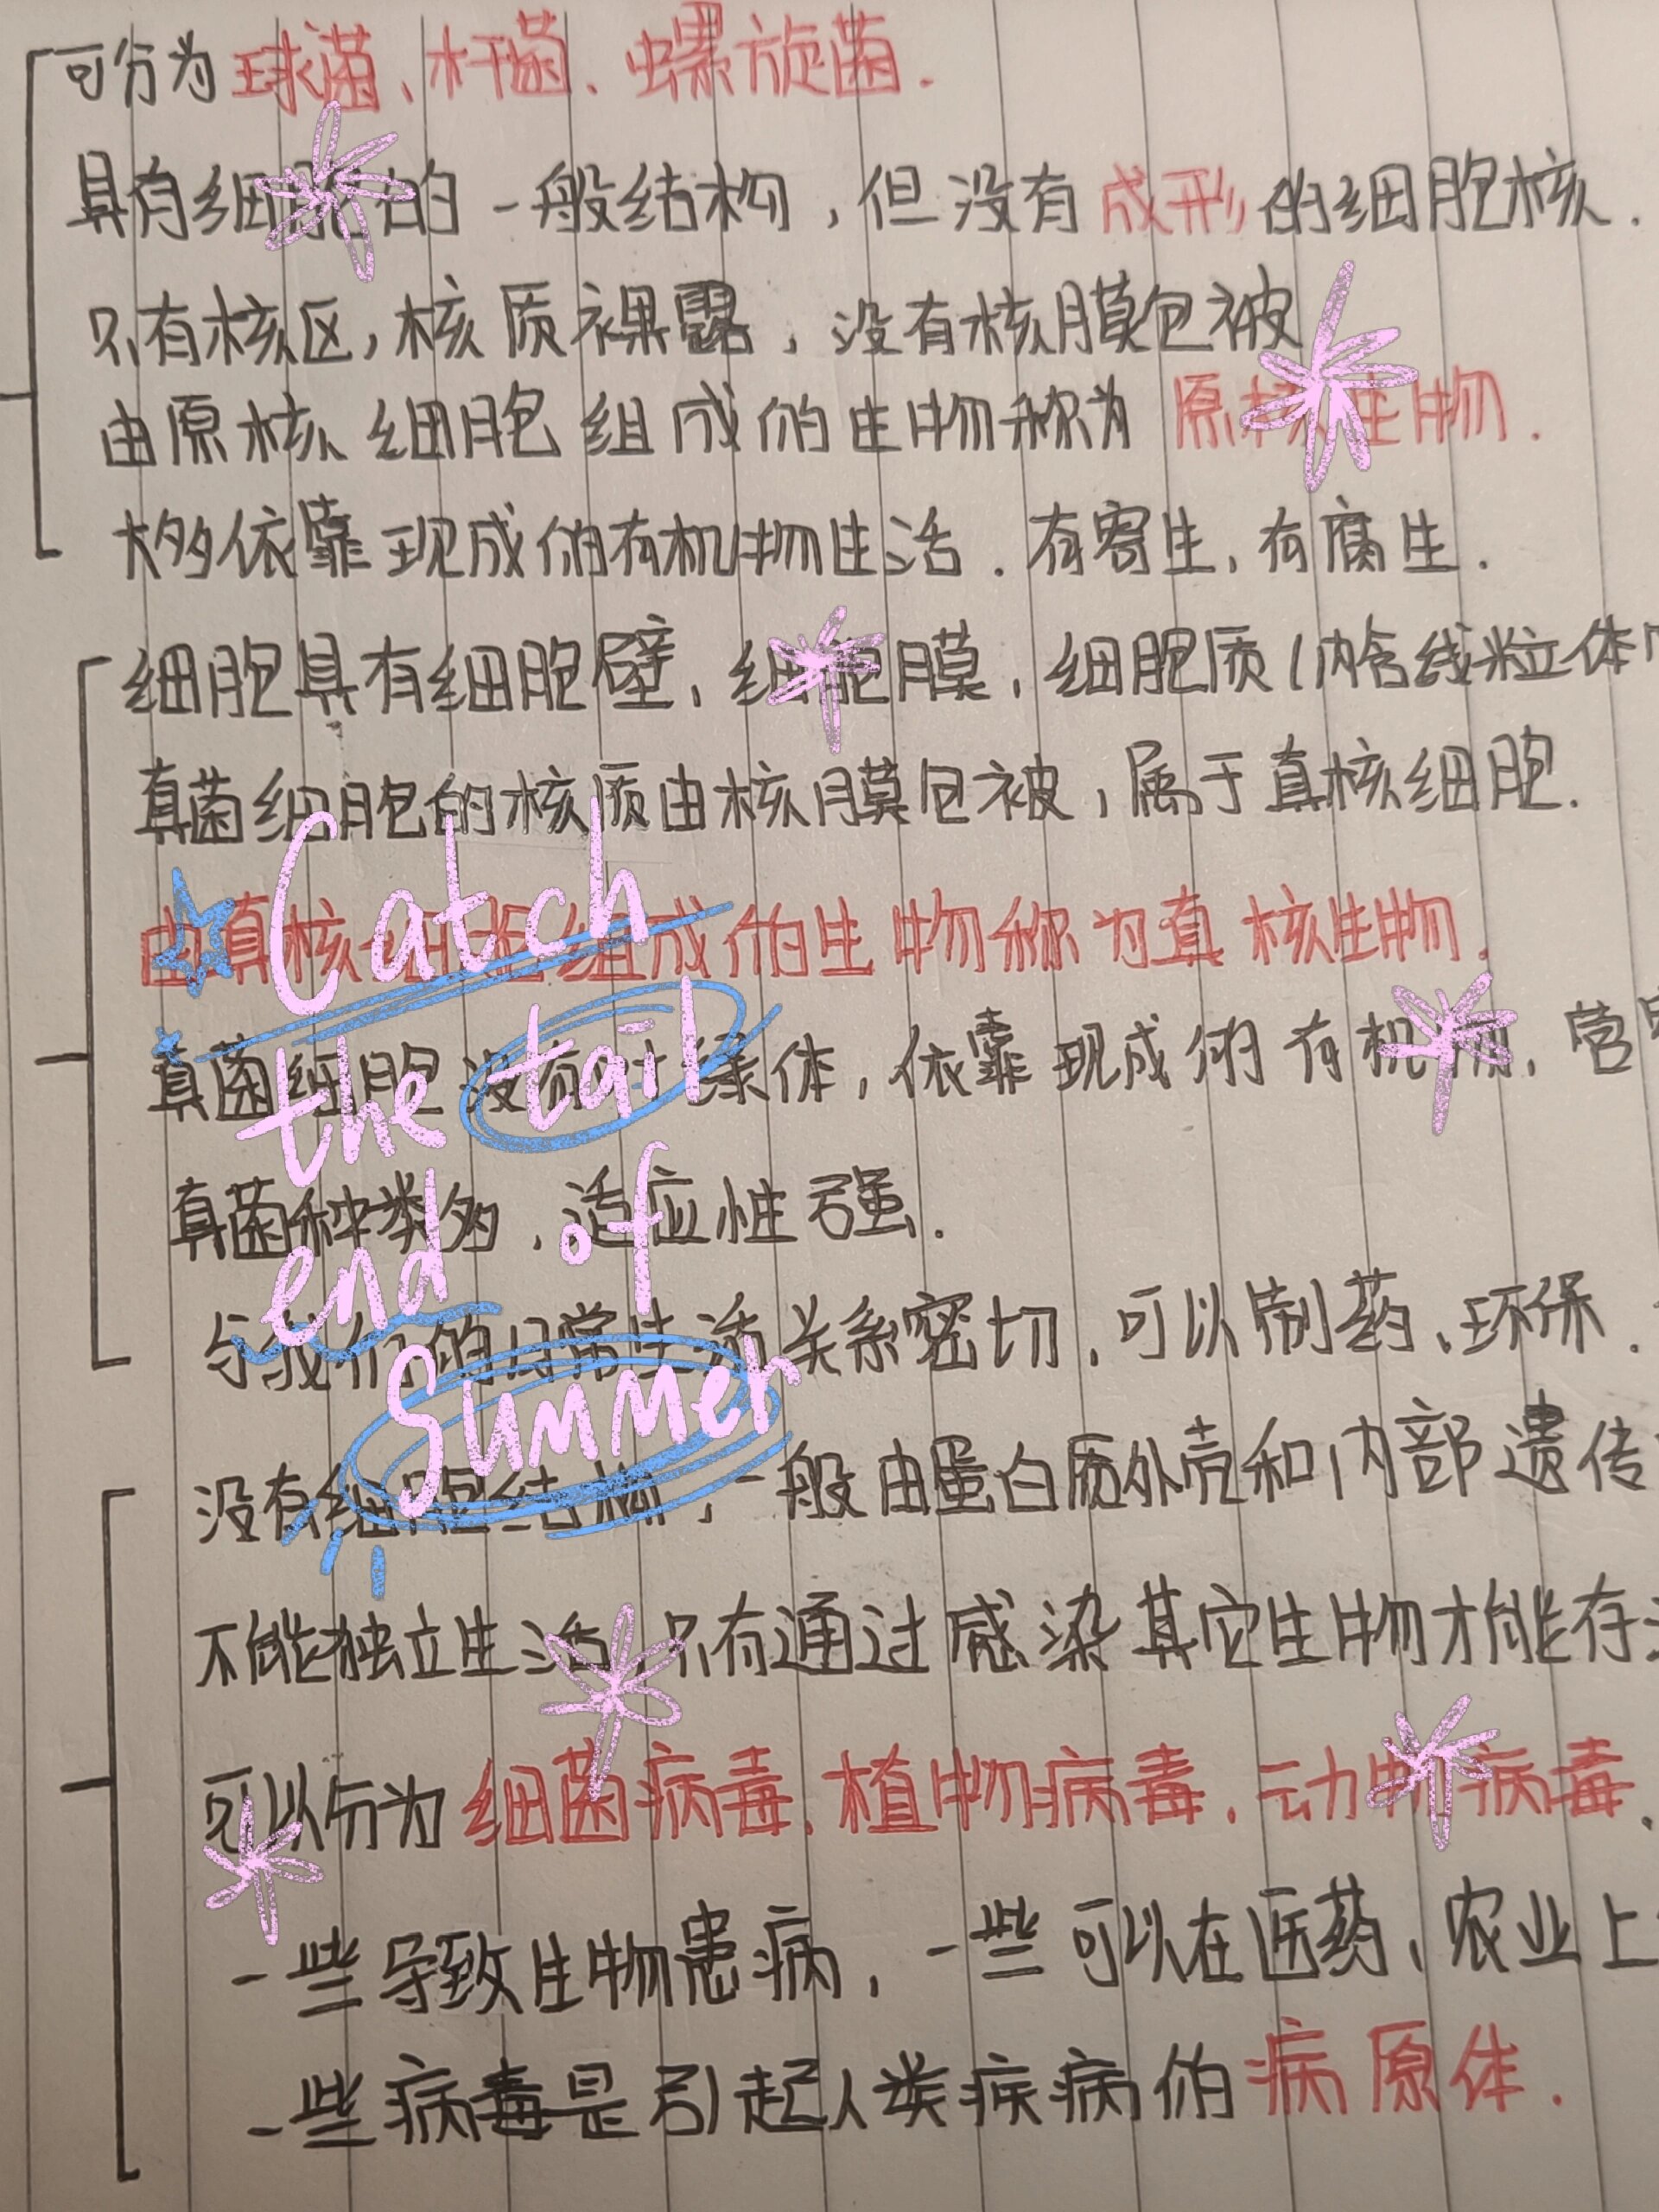 可分为球菌、杆菌、螺旋菌.
具有细胞的一般结构,但没有成形的细胞核.
只有核区,核质裸露,没有核膜包被
由原核细胞组成的生物称为原核生物.
大多依靠现成的有机物生活.有寄生,有腐生.
细胞具有细胞壁,细胞膜,细胞质(内含线粒体
真菌细胞的核质由核膜包被,属于真核细胞.
由真核细胞组成的生物称为真核生物.
真菌细胞没有叶绿体,依靠现成的有机物,营
真菌种类多,适应性强.
与我们的日常生活关系密切,可以制药、环保.
没有细胞结构,一般由蛋白质外壳和内部遗传
不能独立生活,只有通过感染其它生物才能存
可以分为细菌病毒,植物病毒,动物病毒.
一些导致生物患病,一些可以在医药,农业上
一些病毒是引起人类疾病的病原体.
Catch
the tail
end of
Summer